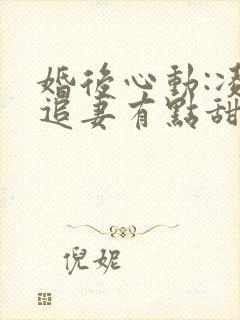 婚後心動:凌
追妻有點甜
倪妮